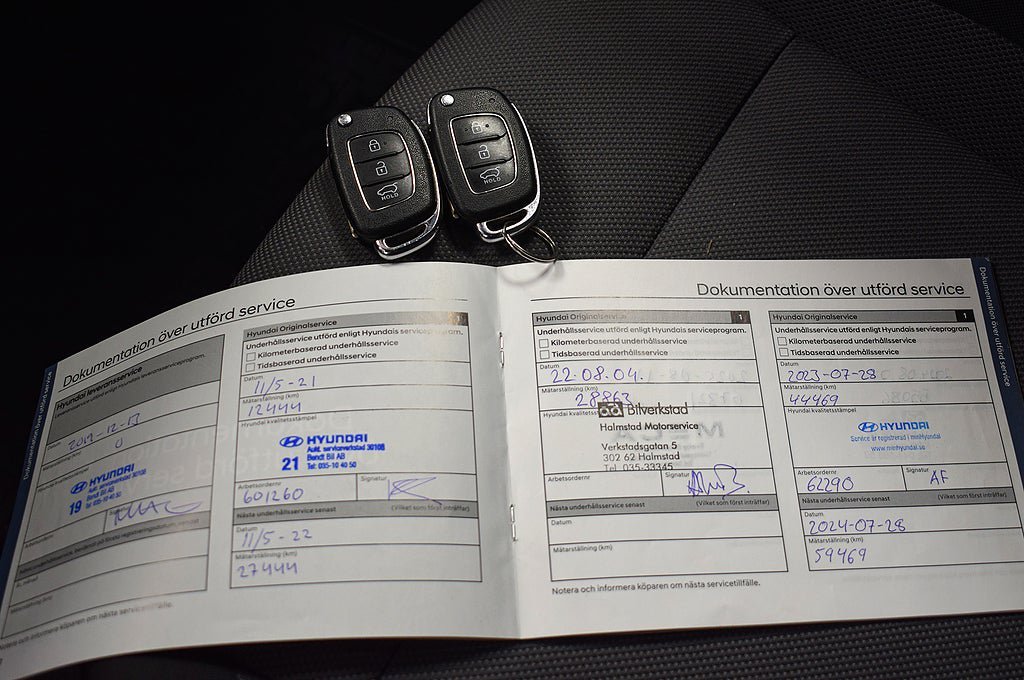 HOLD
HOLD
Dokumentation över utförd service
Dokumentation över utförd service
Hyundai leveransservice
Leveransservice utförd enligt Hyundais leveransserviceprogram.
Datum
2019-12-17
0
Hyundai kvalitetsstämpel
HYUNDAI
Aukt. serviceverkstad 30108
Bendt Bil AB
19 Tel: 035-10 40 50
Arbetsordernr
Signatur
År, månad
Mätarställning (km)
Notera och informera köparen om nästa servicetillfälle.
Hyundai Originalservice 1
Underhållsservice utförd enligt Hyundais serviceprogram.
Kilometerbaserad underhållsservice
Tidsbaserad underhållsservice
Datum
11/5-21
Mätarställning (km)
12444
Hyundai kvalitetsstämpel
HYUNDAI
Aukt. serviceverkstad 30108
Bendt Bil AB
21 Tel: 035-10 40 50
Arbetsordernr Signatur
601260
Nästa underhållsservice senast (Vilket som först inträffar)
Datum
11/5-22
Mätarställning (km)
27444
Dokumentation över utförd service
Dokumentation över utförd service
Hyundai Originalservice 1
Underhållsservice utförd enligt Hyundais serviceprogram.
Kilometerbaserad underhållsservice
Tidsbaserad underhållsservice
Datum
22.08.04.
Mätarställning (km)
28863
Hyundai kvalitetsstämpel
ad Bilverkstad
Halmstad Motorservice
Verkstadsgatan 5
302 62 Halmstad
Tel. 035-33345
Arbetsordernr Signatur
Nästa underhållsservice senast (Vilket som först inträffar)
Datum
Mätarställning (km)
Notera och informera köparen om nästa servicetillfälle.
Hyundai Originalservice 1
Underhållsservice utförd enligt Hyundais serviceprogram.
Kilometerbaserad underhållsservice
Tidsbaserad underhållsservice
Datum
2023-07-28
Mätarställning (km)
44469
Hyundai kvalitetsstämpel
HYUNDAI
Service är registrerad i minHyundai
www.minhyundai.se
Arbetsordernr Signatur
62290 AF
Nästa underhållsservice senast (Vilket som först inträffar)
Datum
2024-07-28
Mätarställning (km)
59469